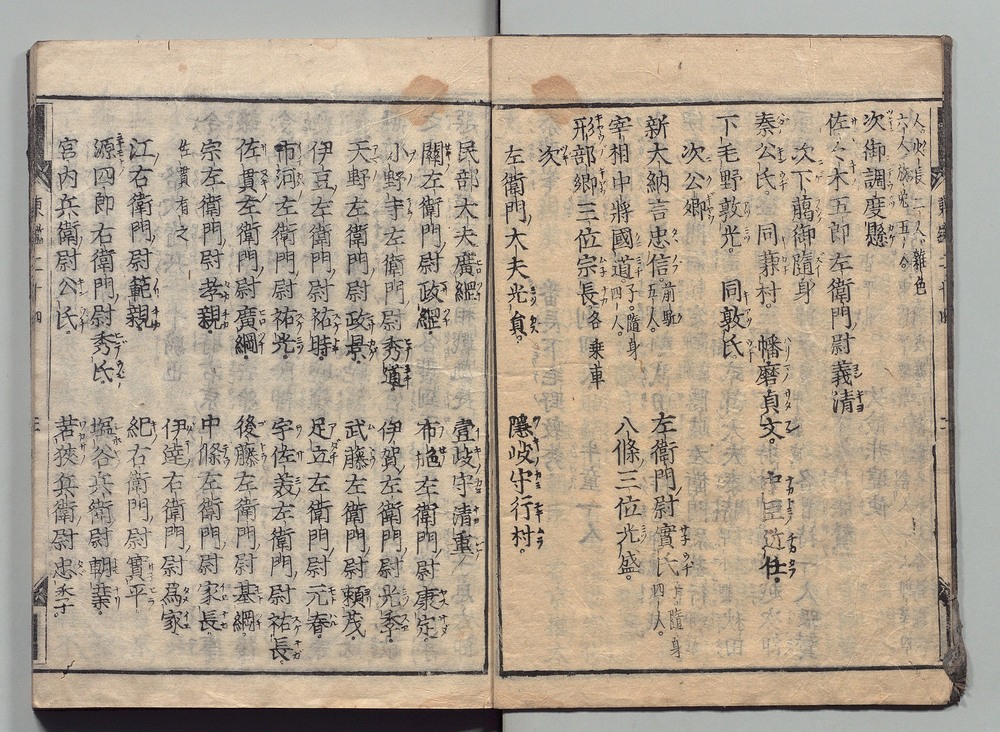 人火長二人雑色
六人
次御調度懸
佐々木五郎左衛門尉義清
次下﨟御隨身
秦公氏。同兼村。幡磨貞文。中臣近任。
下毛野敦光。同敦氏
次公卿
新大納言忠信前駈五人。左衛門尉實氏隨身四人。
宰相中將國道子。隨身四人。八條三位光盛。
刑部卿三位宗長各乗車
次
左衛門大夫光員。隱岐守行村。
民部大夫廣綱壹岐守清重
關左衛門尉政綱布施左衛門尉康定。
小野寺左衛門尉秀道伊賀左衛門尉光季。
天野左衛門尉政景。武藤左衛門尉頼茂。
伊豆左衛門尉祐時。足立左衛門尉元春。
市河左衛門尉祐光。宇佐美左衛門尉祐長。
佐貫左衛門尉廣綱。後藤左衛門尉基綱。
宗左衛門尉孝親。中條左衛門尉家長。
佐貫有之伊達右衛門尉爲家
江右衛門尉範親紀右衛門尉實平。
源四郎右衛門尉秀氏塩谷兵衛尉朝業。
宮内兵衛尉公氏。若狹兵衛尉忠季